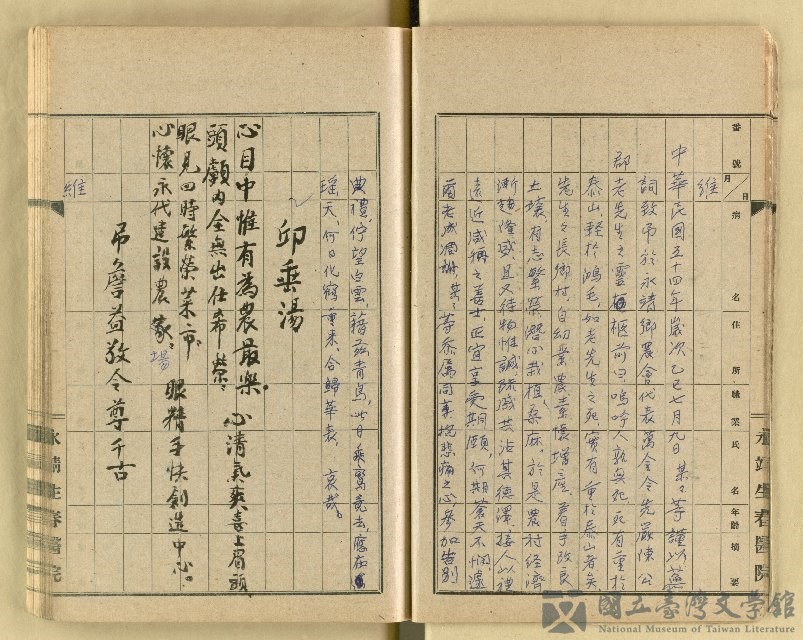 番號 月 日 病名 住所 職業 氏名 年齡 摘要
永靖生春醫院
維
中華民國五十四年歲次乙巳七月九日 某々等謹以蕙
詞致弔於永靖鄉農會代表 令先嚴陳公
老先生之靈柩前曰嗚呼人孰無死死有重於
泰山、輕於鴻毛、如老先生之死實有重於泰山者矣、
先生生長鄉村、自幼業農素懷增產、著手改良
土壤、有志繁榮潛心栽植桑麻。於是農村經濟
漸趨隆盛、且又待物惟誠殊感共沾其德澤、接人以禮
遠近咸稱之善士、正宜享受期頤、何期蒼天不憫遽
爾老成凋謝、某々等忝屬同車抱悲痛之心參加告別
典禮、佇望白雲、藉茲青鳥、此日乘鸞竟去、應在
瑤天、何日化鶴重來、合歸華表、哀哉。
邱垂湯
心目中惟有為農最樂。心清氣爽喜上眉頭、
頭顱內全無出仕希榮、
眼見四時繁榮菜市。眼精手快創造中心。
心懷永代建設農家、場
弔詹益教令尊千古
維
永靖生春醫院
國立臺灣文學館
National Museum of Taiwan Literature